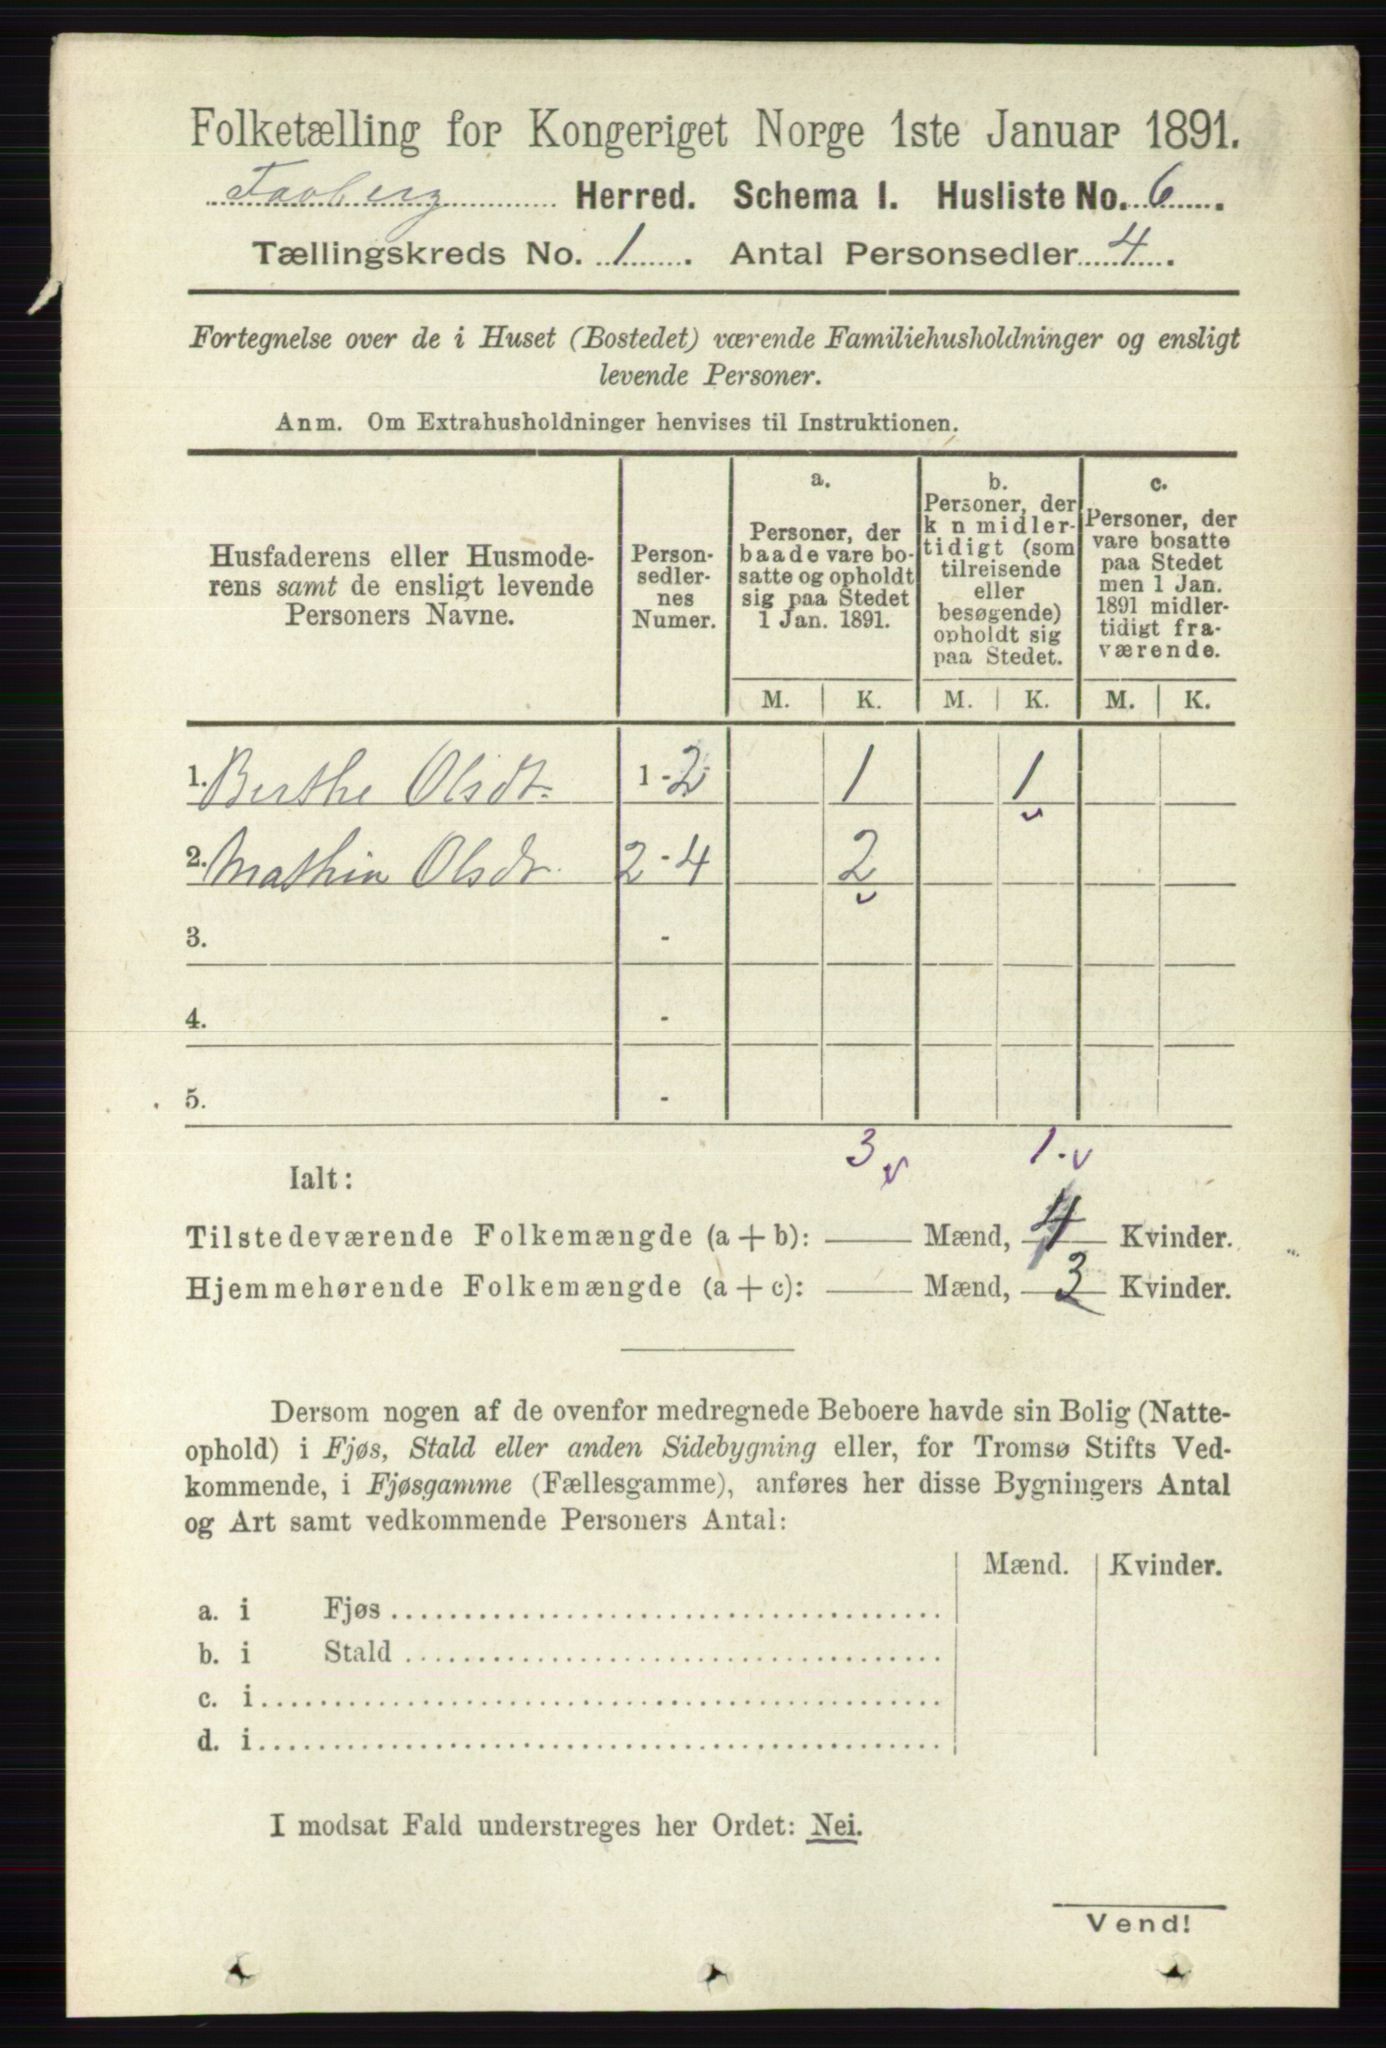 Folketælling for Kongeriget Norge 1ste Januar 1891.
Faaberg Herred. Schema I. Husliste No. 6.
Tællingskreds No. 1. Antal Personsedler 4.
Fortegnelse over de i Huset (Bostedet) værende Familiehusholdninger og ensligt
levende Personer.
Anm. Om Extrahusholdninger henvises til Instruktionen.
Husfaderens eller Husmode-
rens samt de ensligt levende
Personers Navne.
Person-
sedler-
nes
Numer.
a.
Personer, der
baade vare bo-
satte og opholdt
sig paa Stedet
1 Jan. 1891.
b.
Personer, der
k n midler-
tidigt (som
tilreisende
eller
besøgende)
opholdt sig
paa Stedet.
c.
Personer, der
vare bosatte
paa Stedet
men 1 Jan.
1891 midler-
tidigt fra-
værende.
M. K. M. K. M. K.
1. Berthe Olsdt. 1 - 2 1 1
2. Mathia Olsdt. 2 - 4 2
3. -
4. -
5. -
3 v 1. v
Ialt:
Tilstedeværende Folkemængde (a + b): Mænd, 4 Kvinder.
Hjemmehørende Folkemængde (a + c): Mænd, 3 Kvinder.
Dersom nogen af de ovenfor medregnede Beboere havde sin Bolig (Natte-
ophold) i Fjøs, Stald eller anden Sidebygning eller, for Tromsø Stifts Ved-
kommende, i Fjøsgamme (Fællesgamme), anføres her disse Bygningers Antal
og Art samt vedkommende Personers Antal:
Mænd. Kvinder.
a. i Fjøs
b. i Stald
c. i
d. i
I modsat Fald understreges her Ordet: Nei.
Vend!